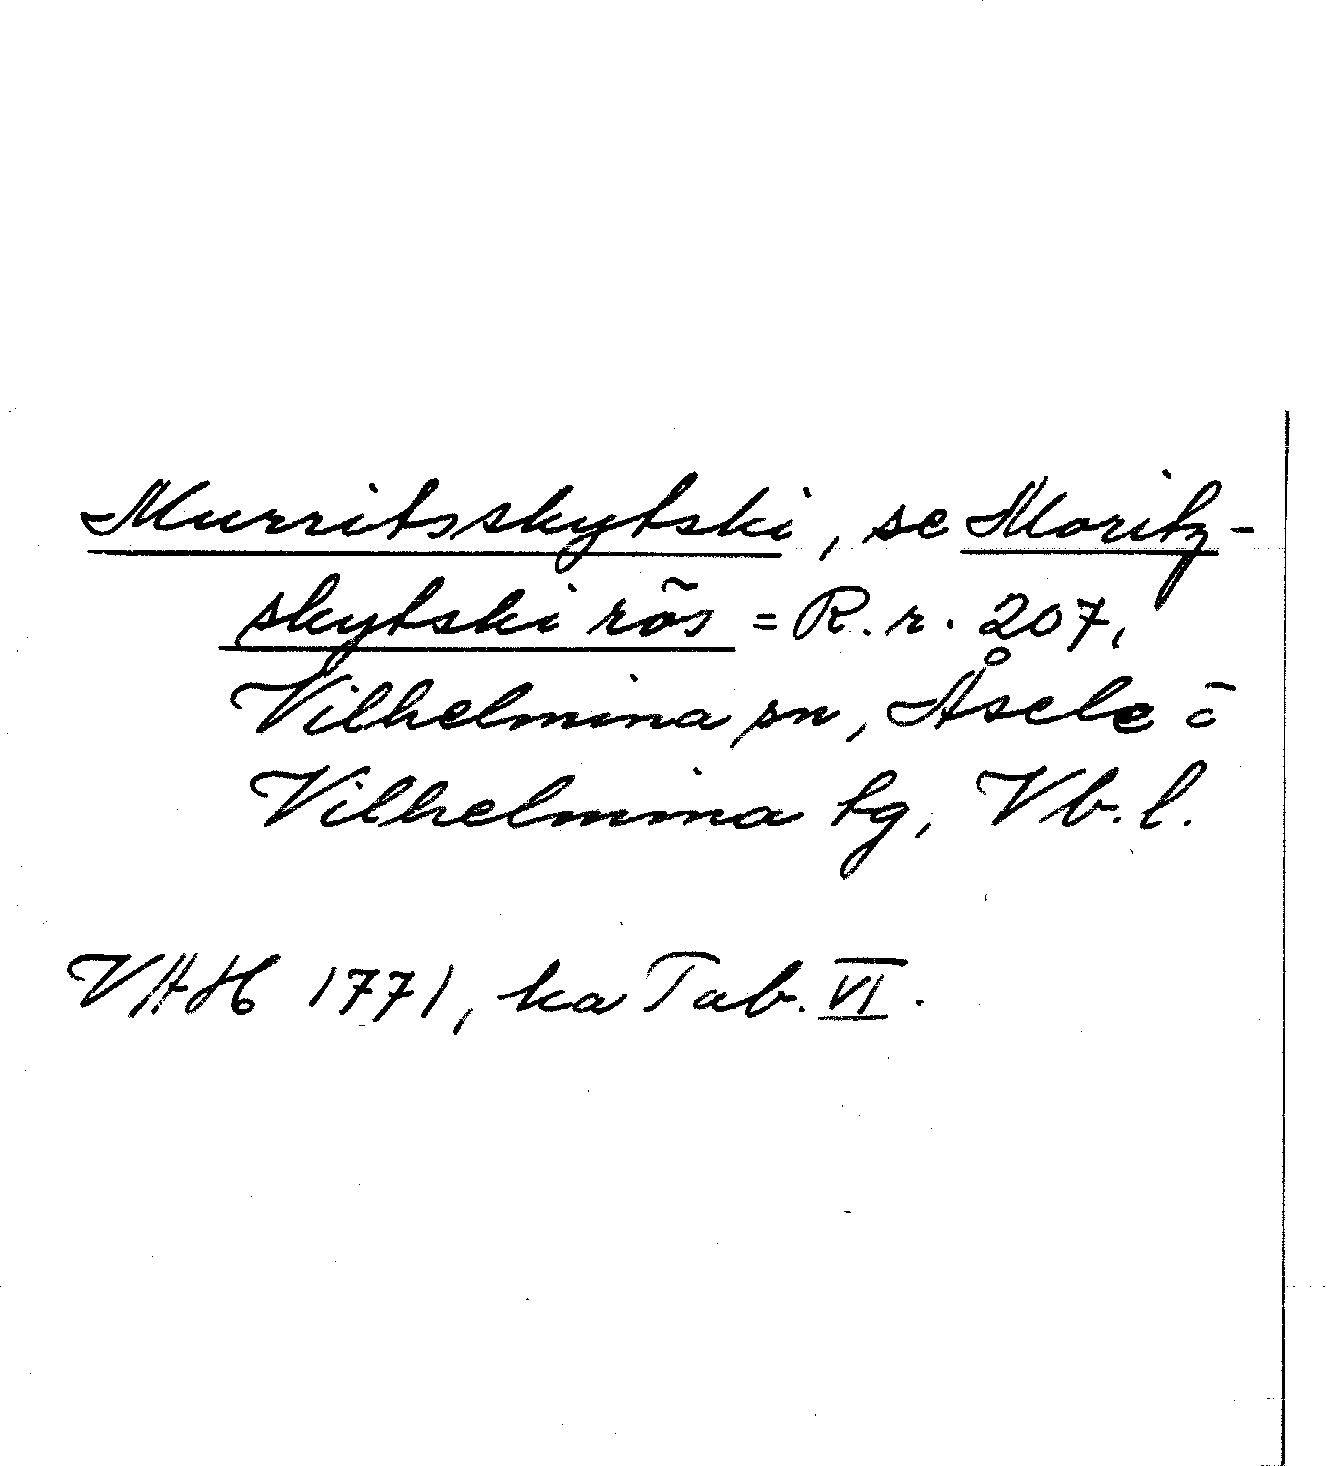 Murritsskytski, se Moritz-
skytski rös = R. r. 207,
Vilhelmina sn, Åsele o
Vilhelmina tg, Vb. l.
VHAH 1771, ka Tab. VI.